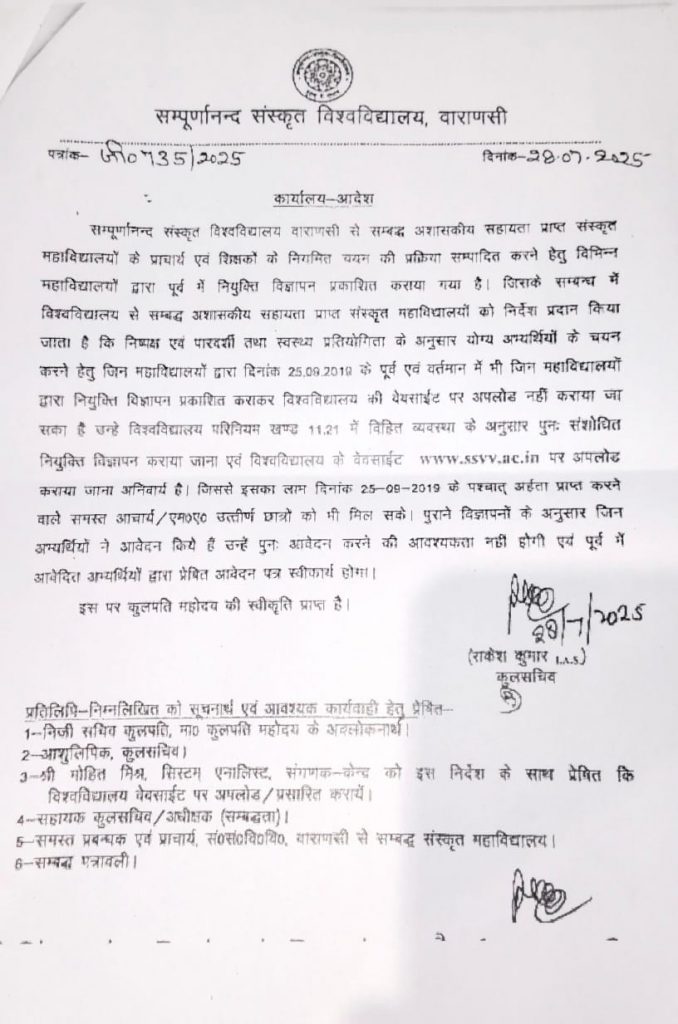 सम्पूर्णानन्द संस्कृत विश्वविद्यालय, वाराणसी
पत्रांक- जी0 735/2025 दिनांक-28.07.2025
कार्यालय-आदेश
सम्पूर्णानन्द संस्कृत विश्वविद्यालय वाराणसी से सम्बद्ध अशासकीय सहायता प्राप्त संस्कृत
महाविद्यालयों के प्राचार्य एवं शिक्षकों के नियमित चयन की प्रक्रिया सम्पादित करने हेतु विभिन्न
महाविद्यालयों द्वारा पूर्व में नियुक्ति विज्ञापन प्रकाशित कराया गया है। जिसके सम्बन्ध में
विश्वविद्यालय से सम्बद्ध अशासकीय सहायता प्राप्त संस्कृत महाविद्यालयों को निर्देश प्रदान किया
जाता है कि निष्पक्ष एवं पारदर्शी तथा स्वस्थ्य प्रतियोगिता के अनुसार योग्य अभ्यर्थियों के चयन
करने हेतु जिन महाविद्यालयों द्वारा दिनांक 25.09.2019 के पूर्व एवं वर्तमान में भी जिन महाविद्यालयों
द्वारा नियुक्ति विज्ञापन प्रकाशित कराकर विश्वविद्यालय की वेबसाईट पर अपलोड नहीं कराया जा
सका है उन्हे विश्वविद्यालय परिनियम खण्ड 11.21 में विहित व्यवस्था के अनुसार पुनः संशोधित
नियुक्ति विज्ञापन कराया जाना एवं विश्वविद्यालय के वेबसाईट www.ssvv.ac.in पर अपलोड
कराया जाना अनिवार्य है। जिससे इसका लाभ दिनांक 25-09-2019 के पश्चात् अर्हता प्राप्त करने
वाले समस्त आचार्य/एम0ए0 उत्तीर्ण छात्रो को भी मिल सके। पुराने विज्ञापनों के अनुसार जिन
अभ्यर्थियों ने आवेदन किये है उन्हें पुनः आवेदन करने की आवश्यकता नहीं होगी एवं पूर्व में
आवेदित अभ्यर्थियों द्वारा प्रेषित आवेदन पत्र स्वीकार्य होगा।
इस पर कुलपति महोदय की स्वीकृति प्राप्त है।
28/7/2025
(राकेश कुमार I.A.S.)
कुलसचिव
प्रतिलिपि-निम्नलिखित को सूचनार्थ एवं आवश्यक कार्यवाही हेतु प्रेषित-
1-निजी सचिव कुलपति, मा0 कुलपति महोदय के अवलोकनार्थ।
2-आशुलिपिक, कुलसचिव।
3-श्री मोहित मिश्र, सिस्टम् एनालिस्ट, संगणक-केन्द्र को इस निर्देश के साथ प्रेषित कि
विश्वविद्यालय वेबसाईट पर अपलोड/प्रसारित करायें।
4-सहायक कुलसचिव/अधीक्षक (सम्बद्धता)।
5-समस्त प्रबन्धक एवं प्राचार्य, सं0सं0वि0वि0, वाराणसी से सम्बद्ध संस्कृत महाविद्यालय।
6-सम्बद्ध पत्रावली।